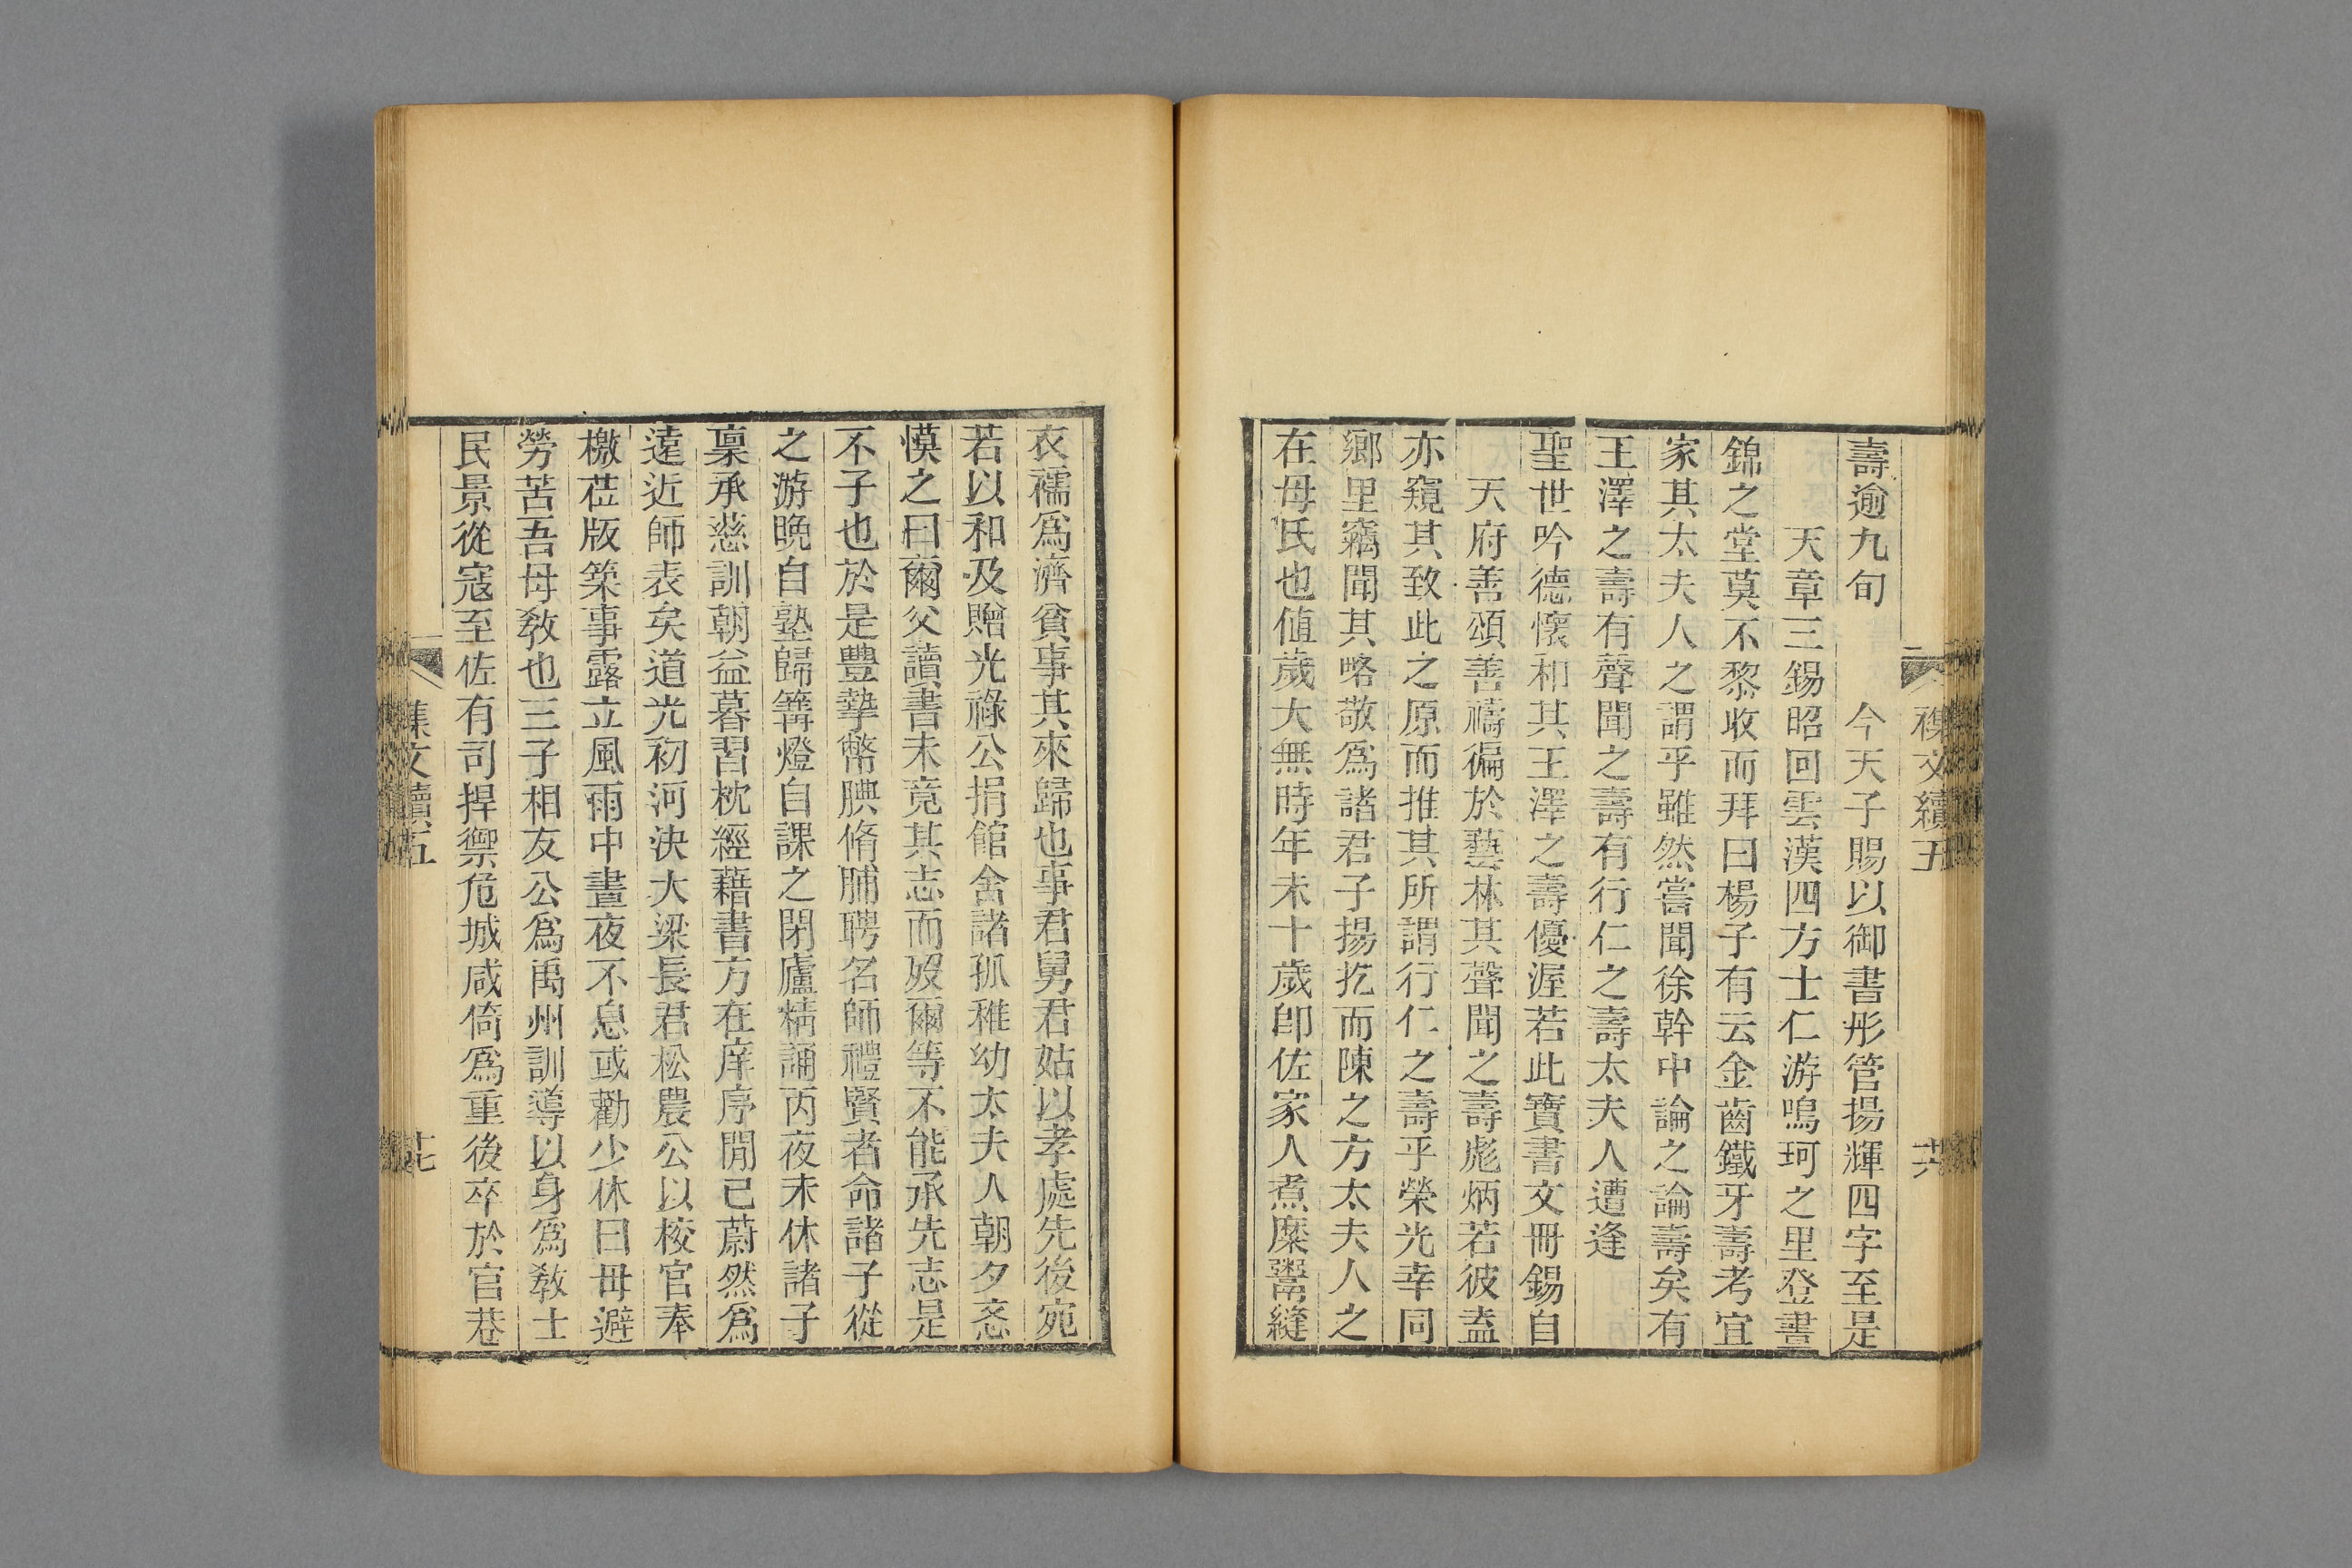 壽逾九旬　今天子賜以御書彤管揚輝四字至是
天章三錫昭回雲漢四方士仁游鳴珂之里登晝
錦之堂莫不黎收而拜曰楊子有云金齒鐵牙壽考宜
家其太夫人之謂乎雖然嘗聞徐幹中論之論壽矣有
王澤之壽有聲聞之壽有行仁之壽太夫人遭逢
聖世吟德懷和其王澤之壽優渥若此寶書文冊錫自
天府善頌善禱徧於藝林其聲聞之壽彪炳若彼盍
亦窺其致此之原而推其所謂行仁之壽乎榮光幸同
鄉里竊聞其略敬爲諸君子揚扢而陳之方太夫人之
在母氏也値歲大無時年未十歲卽佐家人煮糜鬻縫
衣襦爲濟貧事其來歸也事君舅君姑以孝處先後宛
若以和及贈光祿公捐館舍諸孤稚幼太夫人朝夕忞
慔之曰爾父讀書未竟其志而歿爾等不能承先志是
不子也於是豐摯幣腆脩脯聘名師禮賢者命諸子從
之游晩自塾歸篝燈自課之閉廬精誦丙夜未休諸子
稟承慈訓朝益暮習枕經藉書方在庠序閒已蔚然爲
遠近師表矣道光初河決大梁長君松農公以校官奉
檄莅版築事露立風雨中晝夜不息或勸少休曰毋避
勞苦吾母敎也三子相友公爲禹州訓導以身爲敎士
民景從寇至佐有司捍禦危城咸倚爲重後卒於官巷
集文續五